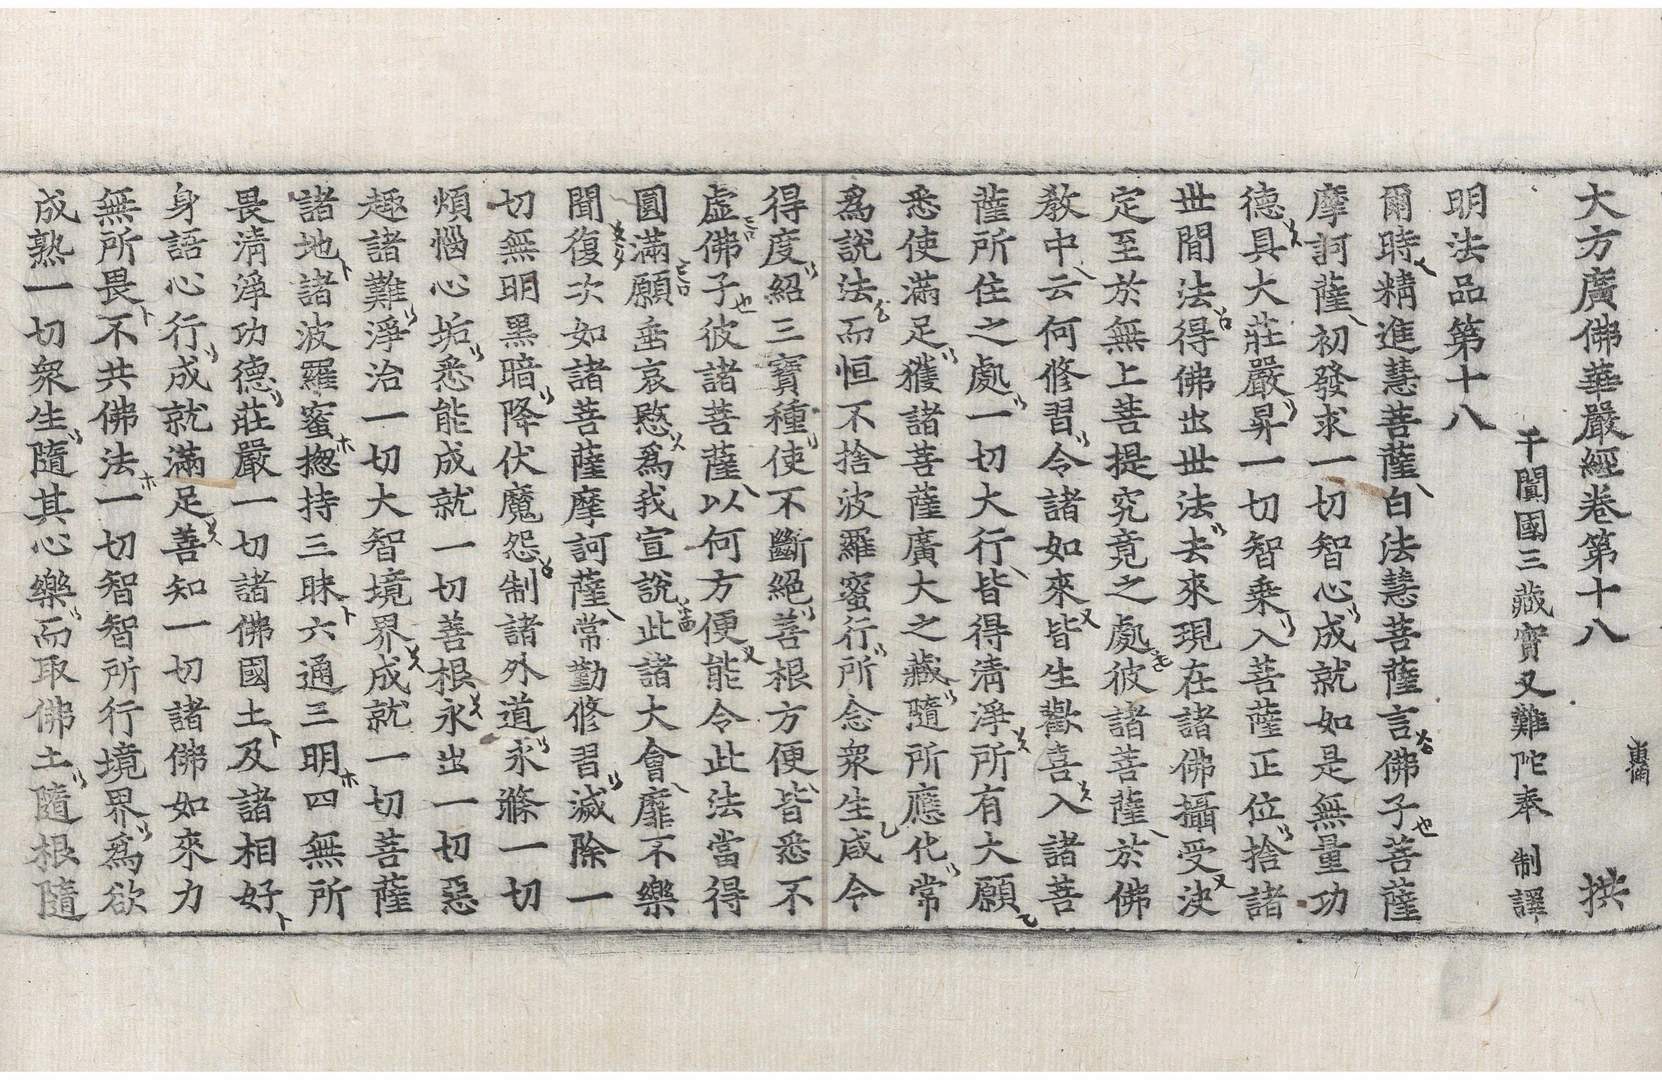 大方廣佛華嚴經卷第十八 拱
于闐國三藏實叉難陀奉 制譯
明法品第十八
爾時精進慧菩薩白法慧菩薩言佛子菩薩
摩訶薩初發求一切智心成就如是無量功
德具大莊嚴昇一切智乘入菩薩正位捨諸
世間法得佛出世法去來現在諸佛攝受決
定至於無上菩提究竟之處彼諸菩薩於佛
教中云何修習令諸如來皆生歡喜入諸菩
薩所住之處一切大行皆得淸淨所有大願
悉使滿足獲諸菩薩廣大之藏隨所應化常
爲說法而恒不捨波羅蜜行所念衆生咸令
得度紹三寶種使不斷絕善根方便皆悉不
虛佛子彼諸菩薩以何方便能令此法當得
圓滿願垂哀愍爲我宣說此諸大會靡不樂
聞復次如諸菩薩摩訶薩常勤修習滅除一
切無明黑暗降伏魔怨制諸外道永滌一切
煩惱心垢悉能成就一切善根永出一切惡
趣諸難淨治一切大智境界成就一切菩薩
諸地諸波羅蜜揔持三昧六通三明四無所
畏淸淨功德莊嚴一切諸佛國土及諸相好
身語心行成就滿足善知一切諸佛如來力
無所畏不共佛法一切智智所行境界爲欲
成熟一切衆生隨其心樂而取佛土隨根隨